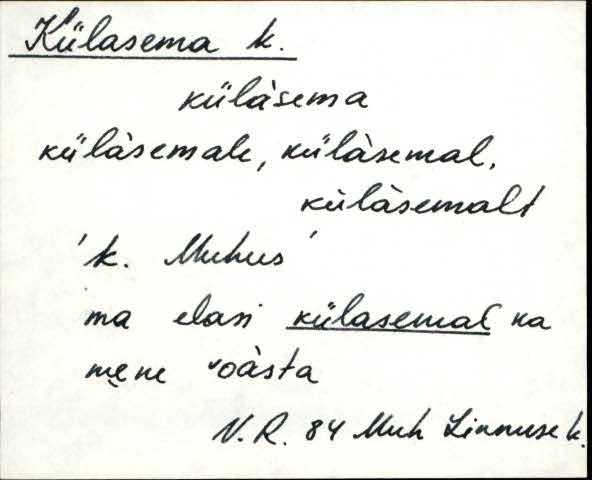 Külasema k.
külàsema
külàsemale, külàsemal,
külàsemalt
'k. Muhus'
ma elasi külasemal na
mene oàsta
V. R. 84 Muh Linnuse k.